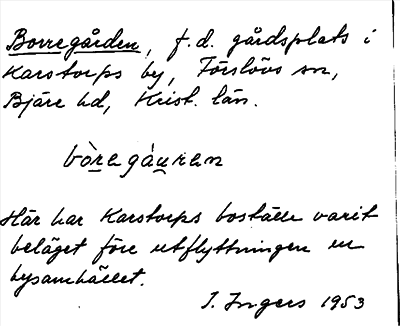 Borregården, f.d. gårdsplats i
Karstorps by, Förslövs sn,
Bjäre hd, Krist. län.
bòregáuṟen
Här har Karstorps boställe varit
beläget före utflyttningen ur
bysamhället.
I. Ingers 1953